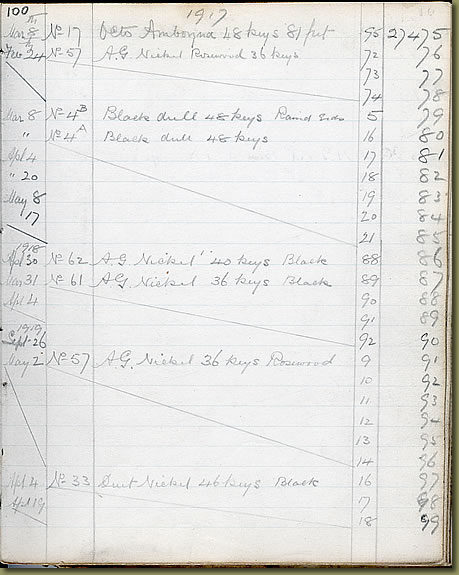 100 1917
Mar 8th No 17 Octo Amboyna 48 keys 81 fret 95 27475
Feb 24th No 57 A.G. Nickel Rosewood 36 keys 72 76
73 77
74 78
Mar 8 No 4B Black dull 48 keys Raised Ends 5 79
" No 4A Black dull 48 keys 16 80
Apl 4 17 81
" 20 18 82
May 8 19 83
17 20 84
21 85
1918
Apl 30 No 62 A.G Nickel 40 keys Black 88 86
Jan 31 No 61 A.G. Nickel 36 keys Black 89 87
Apl 4 90 88
91 89
1919
Sept 26 92 90
May 2 No 57 A.G. Nickel 36 keys Rosewood 9 91
10 92
11 93
12 94
13 95
14 96
Apl 4 No 33 Duet Nickel 46 keys Black 16 97
Apl 19 7 98
18 99